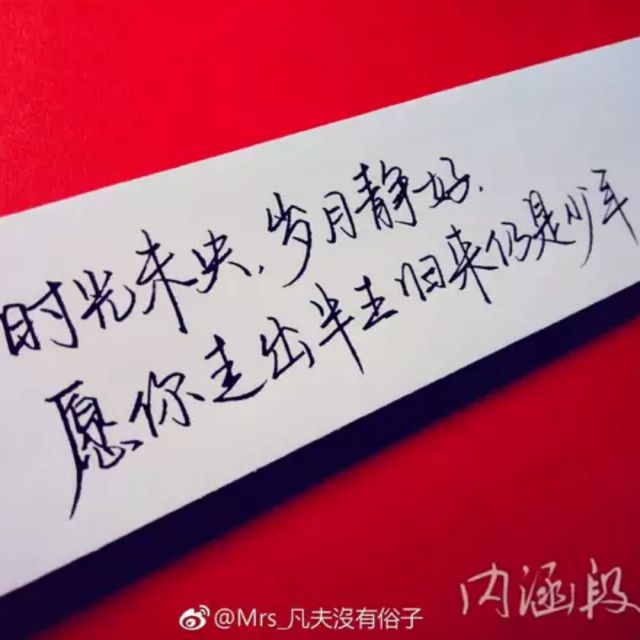 时光未央,岁月静好.
愿你走出半生归来仍是少年
内涵段
@Mrs_凡夫沒有俗子